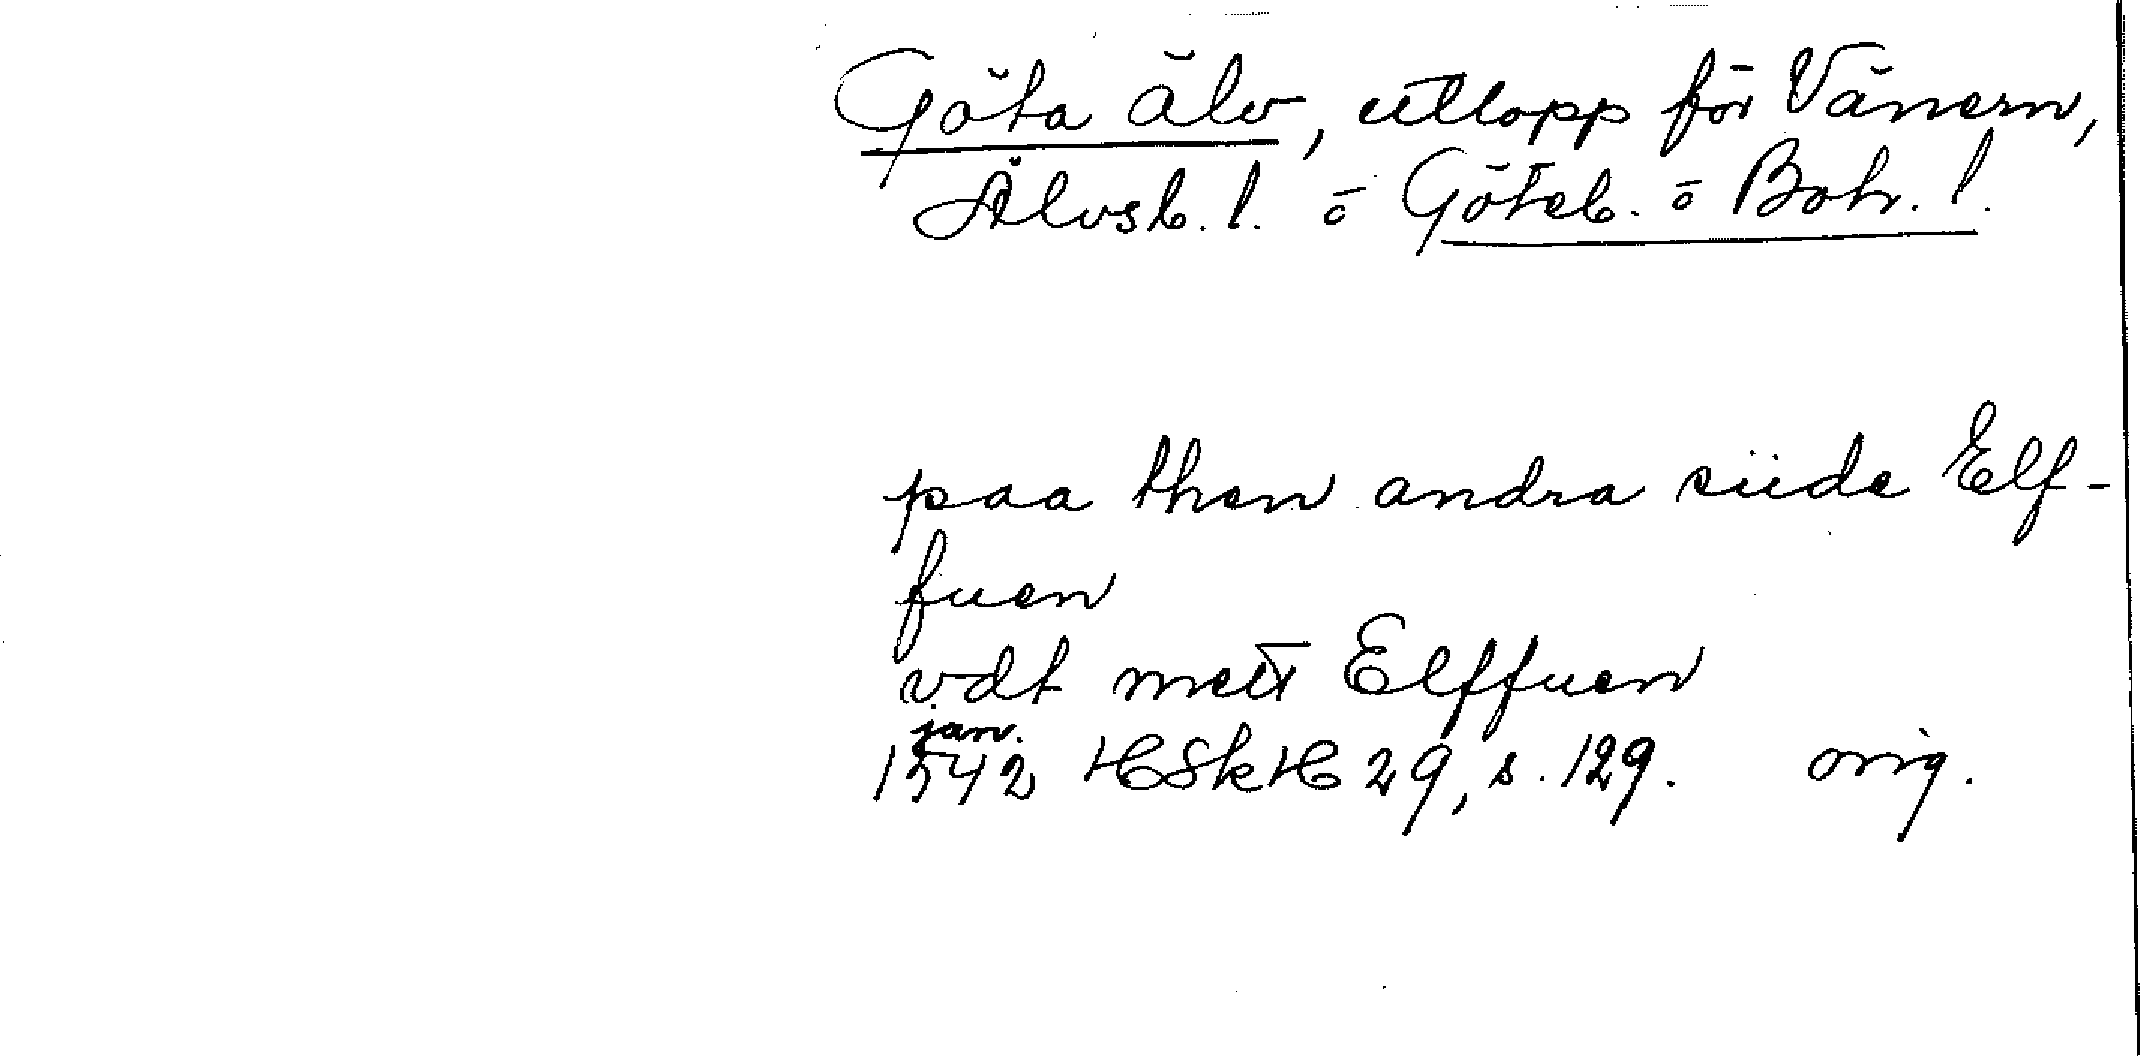 Göta älv, utlopp för Vänern,
Älvsb. l. o Göteb. o Boh. l.
paa then andra siide Elf-
fuen
vdt mett Elffuen
jan.
1542 HSkH 29, s. 129. orig.